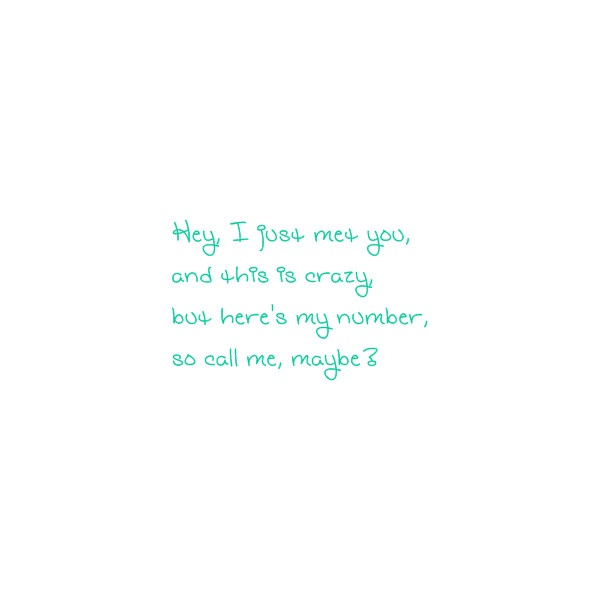 Hey, I just met you,
and this is crazy,
but here's my number,
so call me, maybe?